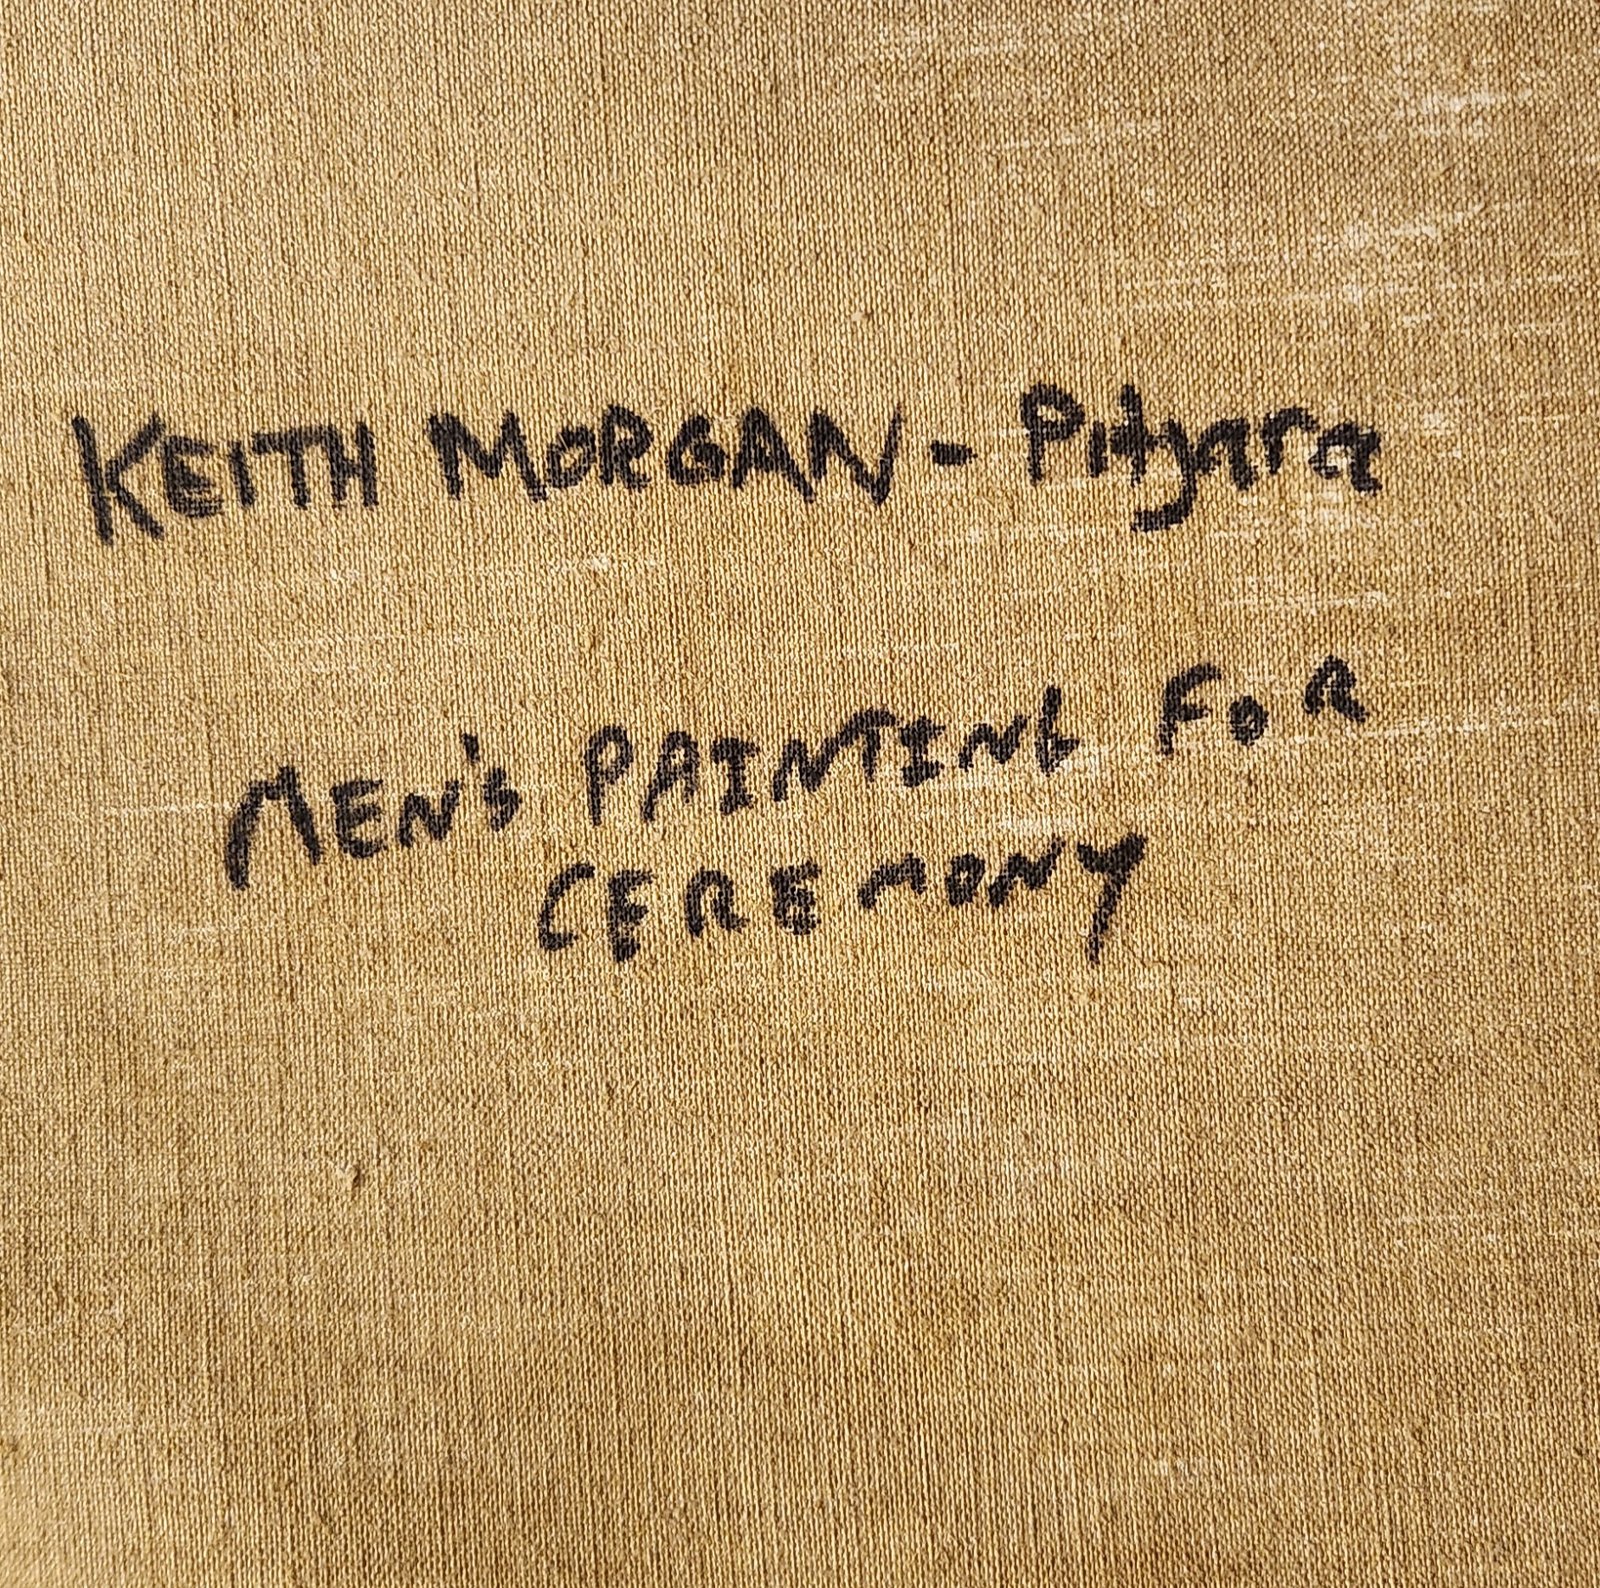 KEITH MORGAN - Pitjara
MEN'S PAINTING FOR
CEREMONY